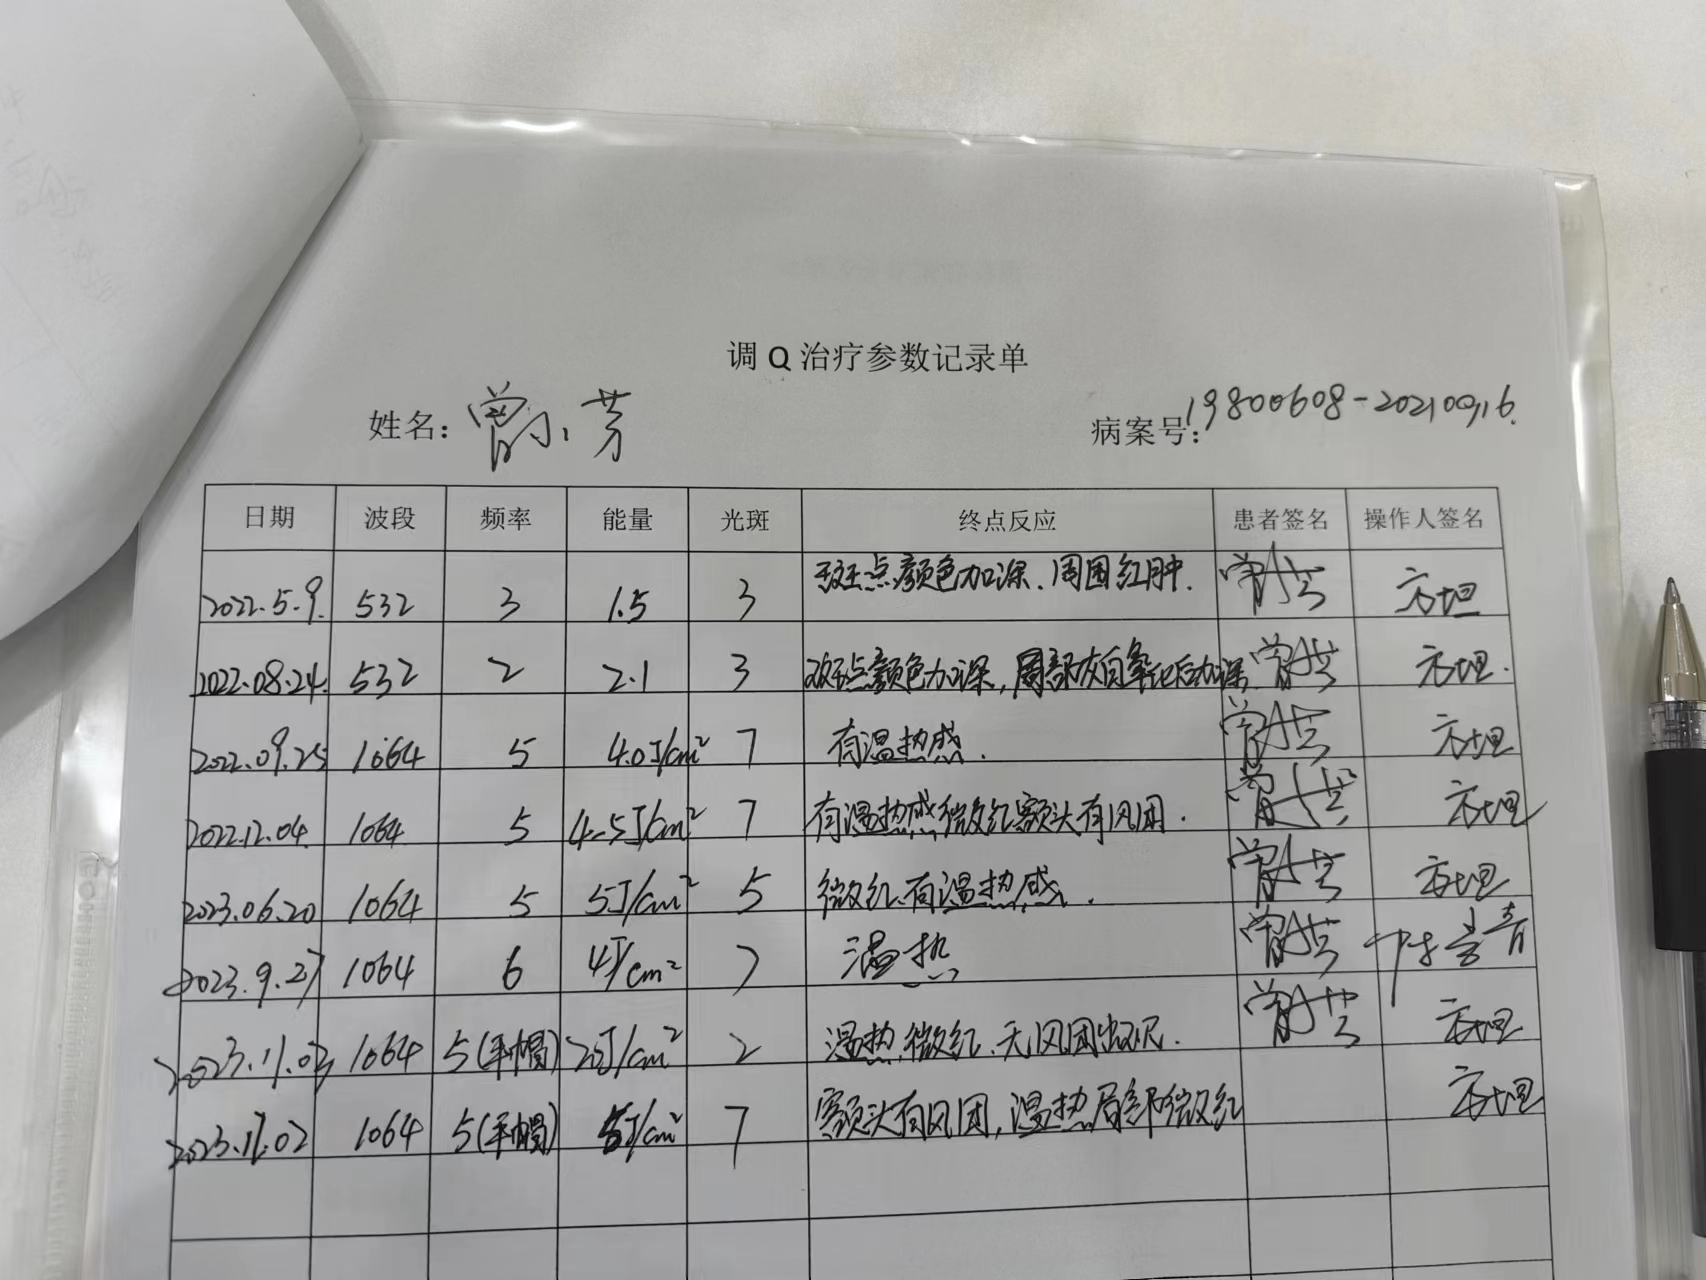 调Q治疗参数记录单
姓名: 曾小芳 病案号: 19800608-20210916.
日期 波段 频率 能量 光斑 终点反应 患者签名 操作人签名
2022.5.9. 532 3 1.5 3 斑点颜色加深、周围红肿.
2022.08.24. 532 2 2.1 3 斑点颜色加深,周部灰白氧化后加深
2022.09.25 1064 5 4.0J/cm² 7 有温热感.
2022.12.04. 1064 5 4.5J/cm² 7 有温热感微红额头有风团.
2023.06.20 1064 5 5J/cm² 5 微红、有温热感.
2023.9.27 1064 6 4J/cm² 7 温热
2023.11.02 1064 5(平帽) 20J/cm² 2 温热,微红、无风团出现.
2023.11.02 1064 5(平帽) 5J/cm² 7 额头有风团,温热局部微红